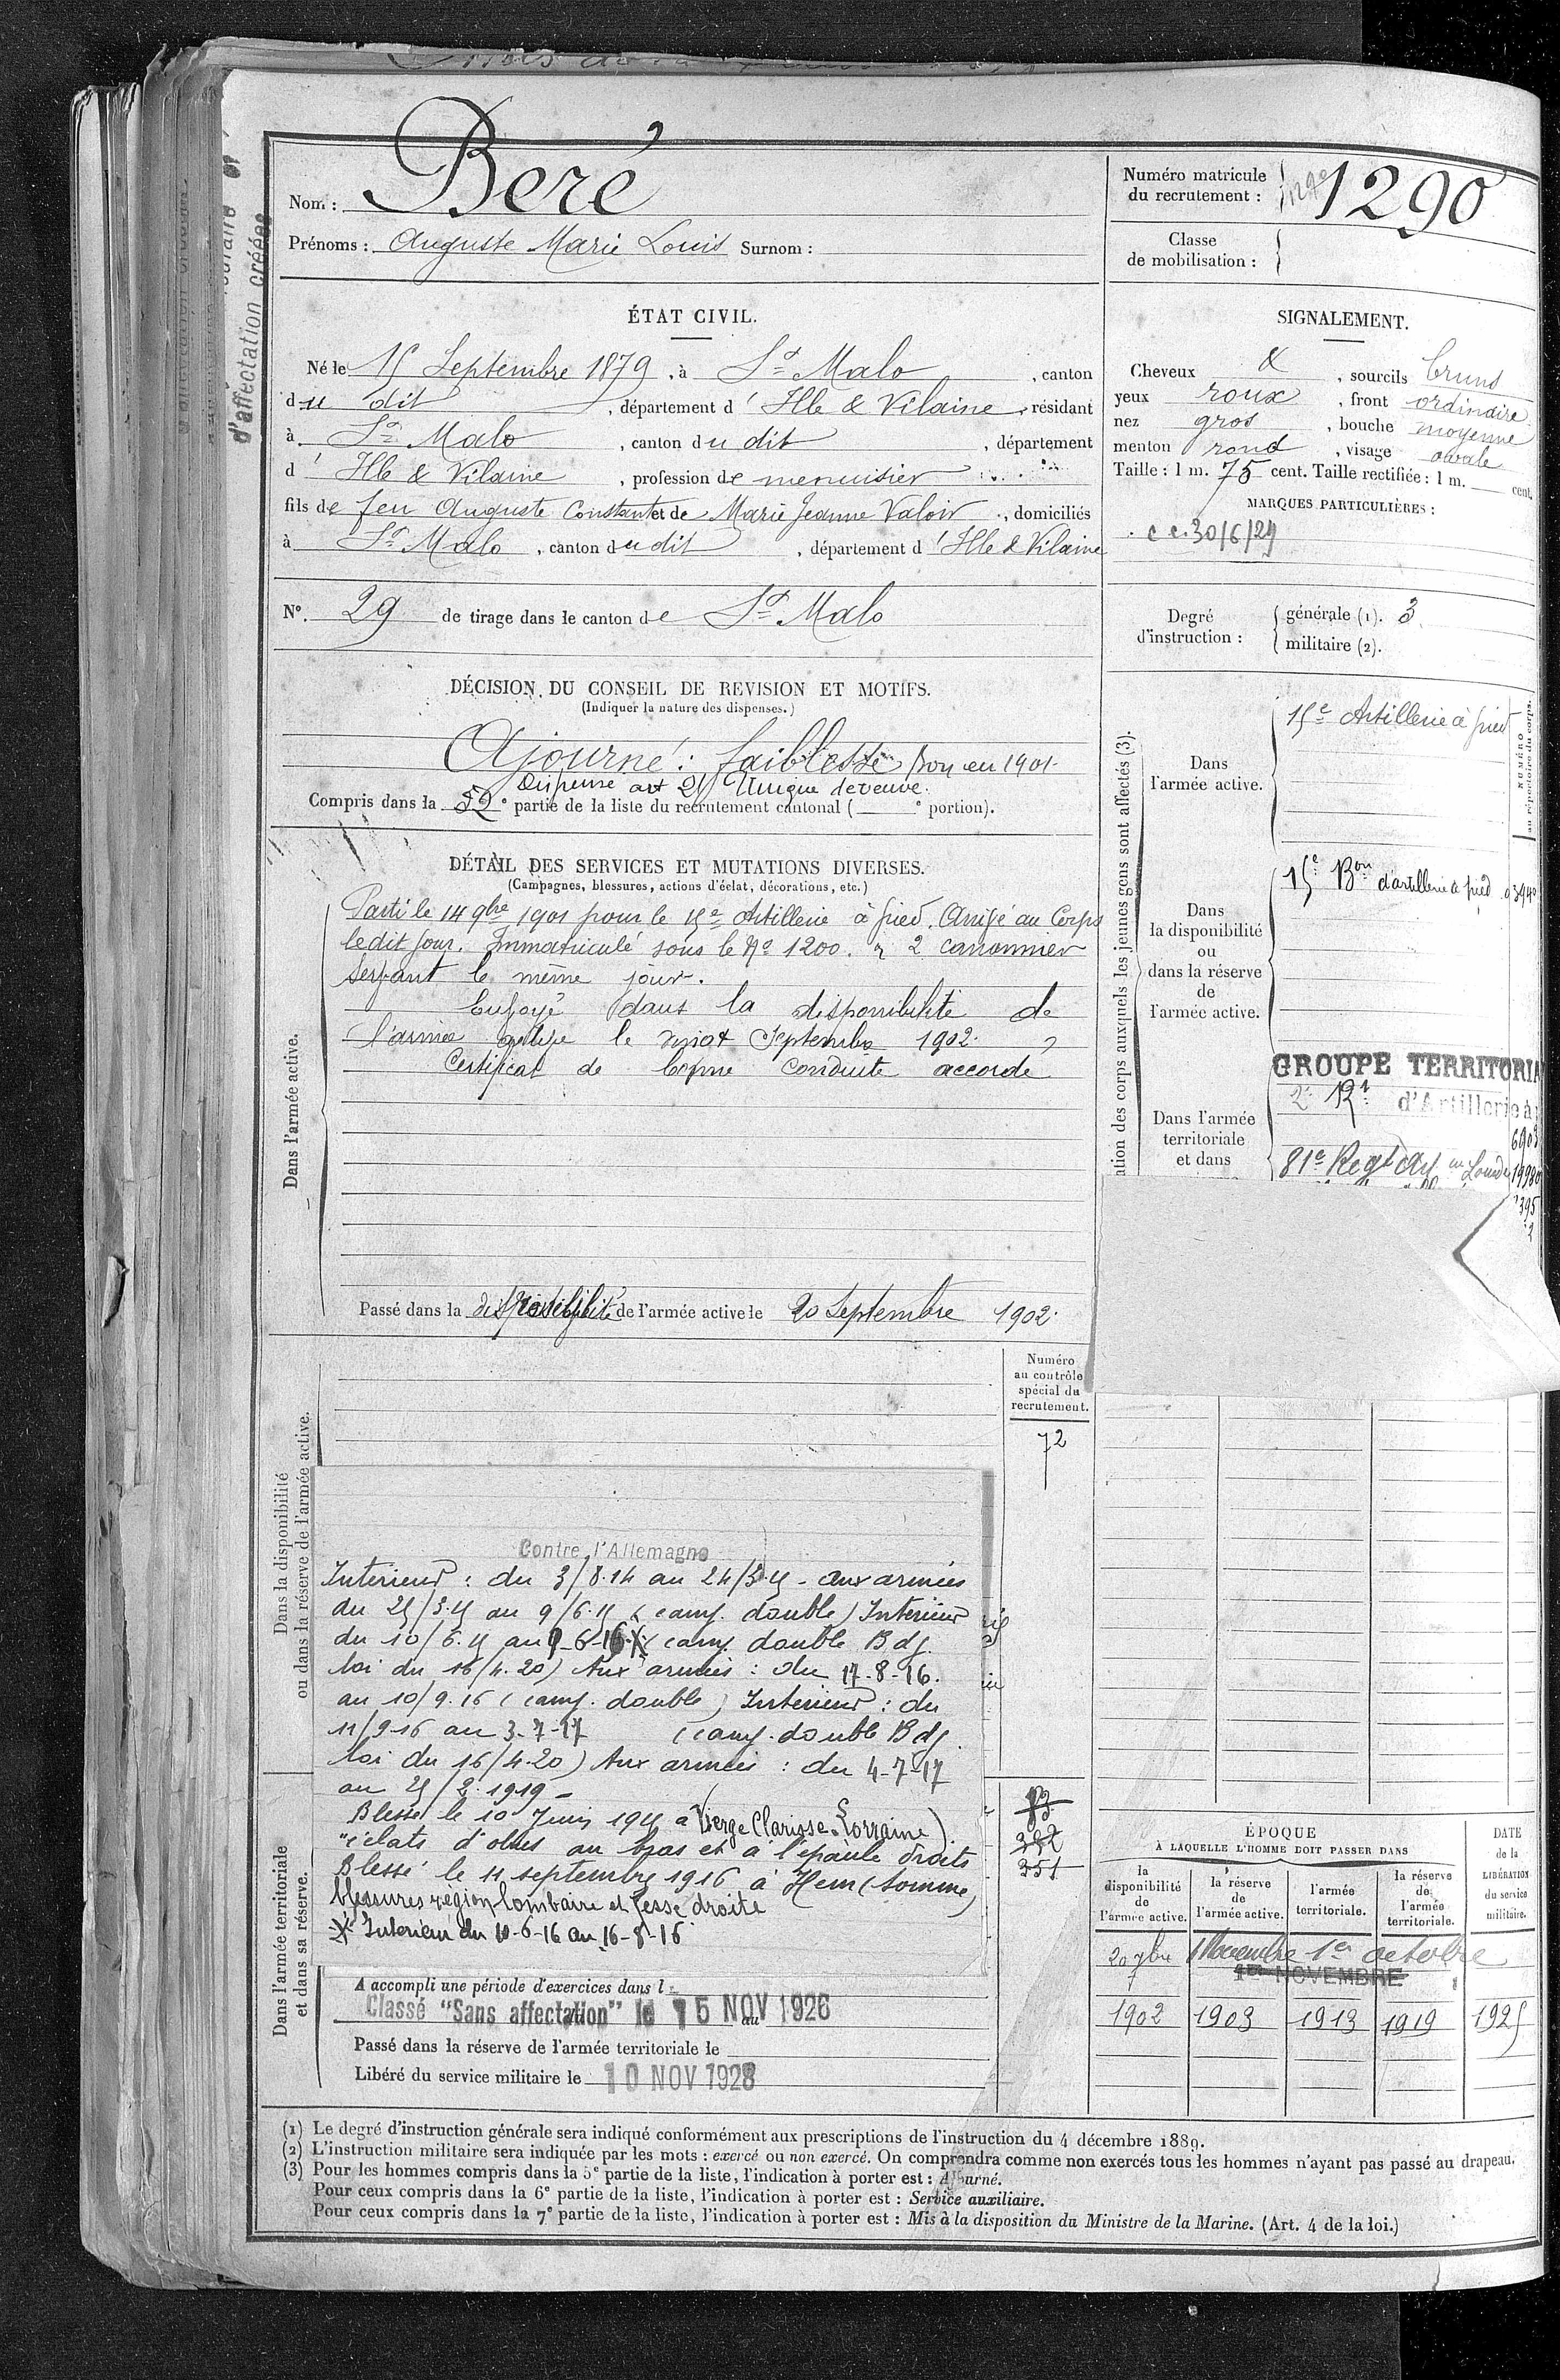 Nom : Beré
Prénoms : Auguste Marie Louis Surnom :
Numéro matricule du recrutement : 1290
Classe de mobilisation :
ÉTAT CIVIL.
Né le 15 Septembre 1879, à St Malo, canton
du dit, département d'Ille & Vilaine, résidant
à St Malo, canton du dit, département
d'Ille & Vilaine, profession de menuisier
fils de feu Auguste Constant et de Marie Jeanne Valoir, domiciliés
à St Malo, canton du dit, département d'Ille & Vilaine
N°. 29 de tirage dans le canton de St Malo
SIGNALEMENT.
Cheveux &, sourcils bruns
yeux roux, front ordinaire
nez gros, bouche moyenne
menton rond, visage ovale
Taille : 1 m. 75 cent. Taille rectifiée : 1 m. cent.
MARQUES PARTICULIÈRES :
c c. 30/6/29
Degré d'instruction : générale (1). 3
militaire (2).
DÉCISION DU CONSEIL DE REVISION ET MOTIFS.
(Indiquer la nature des dispenses.)
Ajourné : faiblesse Bon en 1901
Dispense art 21 Unique de veuve.
Compris dans la e partie de la liste du recrutement cantonal ( e portion).
DÉTAIL DES SERVICES ET MUTATIONS DIVERSES.
(Campagnes, blessures, actions d'éclat, décorations, etc.)
Dans l'armée active.
Parti le 14 9bre 1901 pour le 15e Artillerie à pied. Arrivé au Corps
le dit jour. Immatriculé sous le No 1200. 2 canonnier
servant le même jour.
Envoyé dans la disponibilité de
l'armée active le vingt Septembre 1902.
Certificat de bonne conduite accordé
Passé dans la disponibilité de l'armée active le 20 Septembre 1902.
ation des corps auxquels les jeunes gens sont affectés (3).
NUMÉRO au répertoire du corps.
Dans l'armée active.
15e Artillerie à pied
Dans la disponibilité ou dans la réserve de l'armée active.
15e Bon d'artillerie à pied 03940
Dans l'armée territoriale et dans
GROUPE TERRITORIA
2e Rt d'Artillerie à
81e Regt d'Art en Lourde
Numéro au contrôle spécial du recrutement.
72
Dans la disponibilité ou dans la réserve de l'armée active.
Contre l'Allemagne
Intérieur : du 3/8.14 au 24/5.15 - aux armées
du 25/5.15 au 9/6.15 (camp. double) Intérieur
du 10/6.15 au 9-6-16 * (camp. double Bdg.
loi du 16/4.20) Aux armées : du 17-8-16.
au 10/9.16 (camp. double) Intérieur : du
11/9-16 au 3-7-17 (camp. double Bdg.
loi du 16/4-20) Aux armées : du 4-7-17
au 25/2.1919 -
Blessé le 10 Juin 1915 à (Vierge Clarisse-Lorraine).
"éclats d'obus au bras et à l'épaule droits
Blessé le 11 septembre 1916 à Hem (Somme)
blessures région lombaire et fesse droite
* Intérieur du 10-6-16 au 16-8-16
83
382
351
Dans l'armée territoriale et dans sa réserve.
A accompli une période d'exercices dans l
Classé "Sans affectation" le 15 NOV 1926
au
Passé dans la réserve de l'armée territoriale le
Libéré du service militaire le 10 NOV 1928
ÉPOQUE À LAQUELLE L'HOMME DOIT PASSER DANS
la disponibilité de l'armée active.
la réserve de l'armée active.
l'armée territoriale.
la réserve de l'armée territoriale.
DATE de la LIBÉRATION du service militaire.
20 7bre 1 Novembre 1er octobre
1er NOVEMBRE
1902 1903 1913 1919 1925
(1) Le degré d'instruction générale sera indiqué conformément aux prescriptions de l'instruction du 4 décembre 1889.
(2) L'instruction militaire sera indiquée par les mots : exercé ou non exercé. On comprendra comme non exercés tous les hommes n'ayant pas passé au drapeau.
(3) Pour les hommes compris dans la 5e partie de la liste, l'indication à porter est : Ajourné.
Pour ceux compris dans la 6e partie de la liste, l'indication à porter est : Service auxiliaire.
Pour ceux compris dans la 7e partie de la liste, l'indication à porter est : Mis à la disposition du Ministre de la Marine. (Art. 4 de la loi.)
d'affectation créées